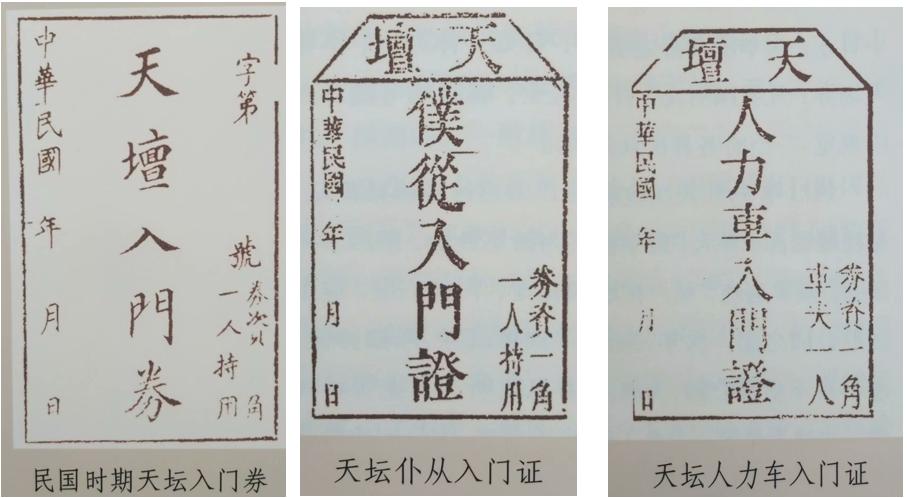 字第 號
券資 角
一人持用
天壇入門券
中華民國 年 月 日
民国时期天坛入门券
天壇
券資一角
一人持用
僕從入門證
中華民國 年 月 日
天坛仆从入门证
天壇
券資一角
車夫一人
人力車入門證
中華民國 年 月 日
天坛人力车入门证